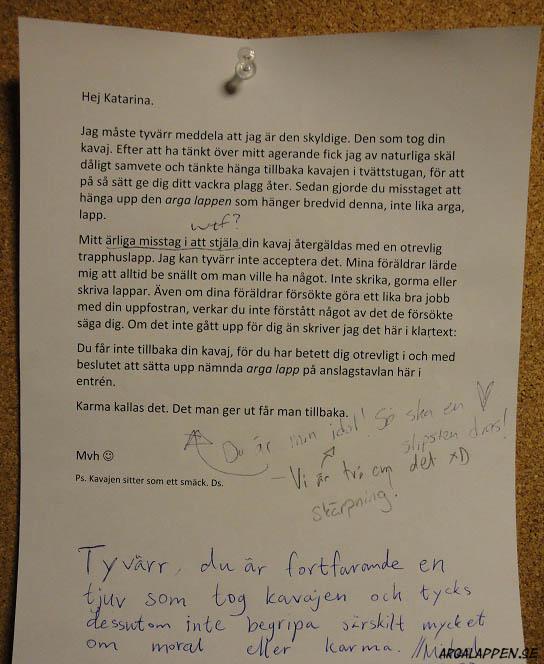 Hej Katarina.
Jag måste tyvärr meddela att jag är den skyldige. Den som tog din
kavaj. Efter att ha tänkt över mitt agerande fick jag av naturliga skäl
dåligt samvete och tänkte hänga tillbaka kavajen i tvättstugan, för att
på så sätt ge dig ditt vackra plagg åter. Sedan gjorde du misstaget att
hänga upp den arga lappen som hänger bredvid denna, inte lika arga,
lapp.
wtf?
Mitt ärliga misstag i att stjäla din kavaj återgäldas med en otrevlig
trapphuslapp. Jag kan tyvärr inte acceptera det. Mina föräldrar lärde
mig att alltid be snällt om man ville ha något. Inte skrika, gorma eller
skriva lappar. Även om dina föräldrar försökte göra ett lika bra jobb
med din uppfostran, verkar du inte förstått något av det de försökte
säga dig. Om det inte gått upp för dig än skriver jag det här i klartext:
Du får inte tillbaka din kavaj, för du har betett dig otrevligt i och med
beslutet att sätta upp nämnda arga lapp på anslagstavlan här i
entrén.
Karma kallas det. Det man ger ut får man tillbaka.
Du är min idol! Så ska en
slipsten dras!
Mvh ☺
– Vi är två om det XD
Ps. Kavajen sitter som ett smäck. Ds.
skärpning.
Tyvärr, du är fortfarande en
tjuv som tog kavajen och tycks
dessutom inte begripa särskilt mycket
om moral eller karma.
ARGALAPPEN.SE